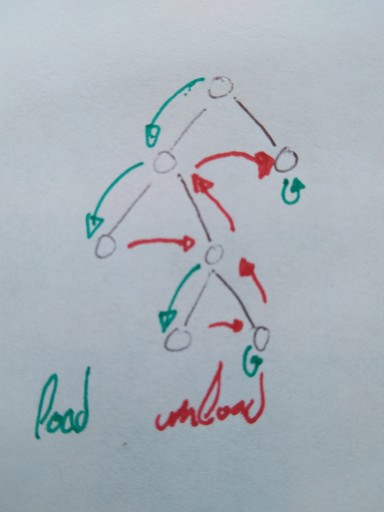 load unload